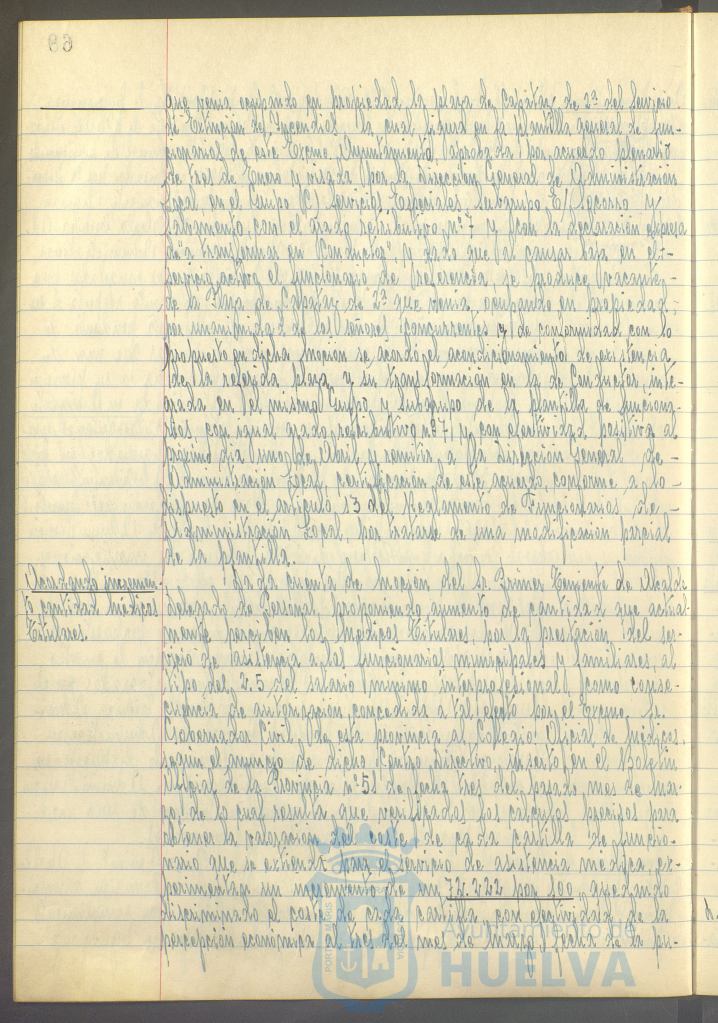 69
que venia ocupando en propiedad la plaza de Capataz de 2ª del Servicio
de Extinción de Incendios la cual figura en la plantilla general de fun-
cionarios de este Excmo. Ayuntamiento, aprobada por acuerdo plenario
de tres de Enero y visada por la Dirección General de Administración
Local, en el Grupo C) Servicios Especiales, Subgrupo E/ Socorro y
Salvamento, con el grado retributivo nº 7 y con la declaración expresa
de "a transformar en Conductor", y dado que al causar baja en el-
servicio activo el funcionario de referencia, se produce vacante-
de la Plaza de Capataz de 2ª que venia ocupando en propiedad;
por unanimidad de los señores concurrentes y de conformidad con lo
propuesto en dicha moción se acordó el acondicionamiento de existencia
de la referida plaza y su transformación en la de Conductor, inte-
grada en el mismo Grupo y Subgrupo de la plantilla de funciona-
rios, con igual grado retributivo nº 7/ y con efectividad positiva al
próximo día Uno de Abril y remitir a la Dirección General de-
Administración Local, certificación de este acuerdo, conforme a lo-
dispuesto en el articulo 13 del Reglamento de Funcionarios de-
Administración Local, por tratarse de una modificación parcial
de la plantilla.
Acordando incremen-
to cantidad Médicos
Titulares.
Dada cuenta de Moción del Sr. Primer Teniente de Alcalde
Delegado de Personal, proponiendo aumento de cantidad que actual-
mente perciben los Médicos Titulares, por la prestación del ser-
vicio de asistencia a los funcionarios municipales y familiares, al
tipo del 2.5 del salario mínimo interprofesional, como conse-
cuencia de autorización concedida a tal efecto por el Excmo. Sr.
Gobernador Civil de esta provincia al Collegio Oficial de Médicos,
según el anuncio de dicho Centro directivo, inserto en el Boletín
Oficial de la Provincia nº 51 de fecha tres del pasado mes de Mar-
zo, de lo cual resulta que verificados los cálculos precisos para
obtener la valoración del coste de cada cartilla de funcio-
nario que se extienda para el servicio de asistencia médica, ex-
perimentan un incremento de un 72.222 por 100, quedando
discriminado el coste de cada cartilla con efectividad de la
percepción económica al tres del mes de Marzo, fecha de la pu-
Ayuntamiento de
HUELVA